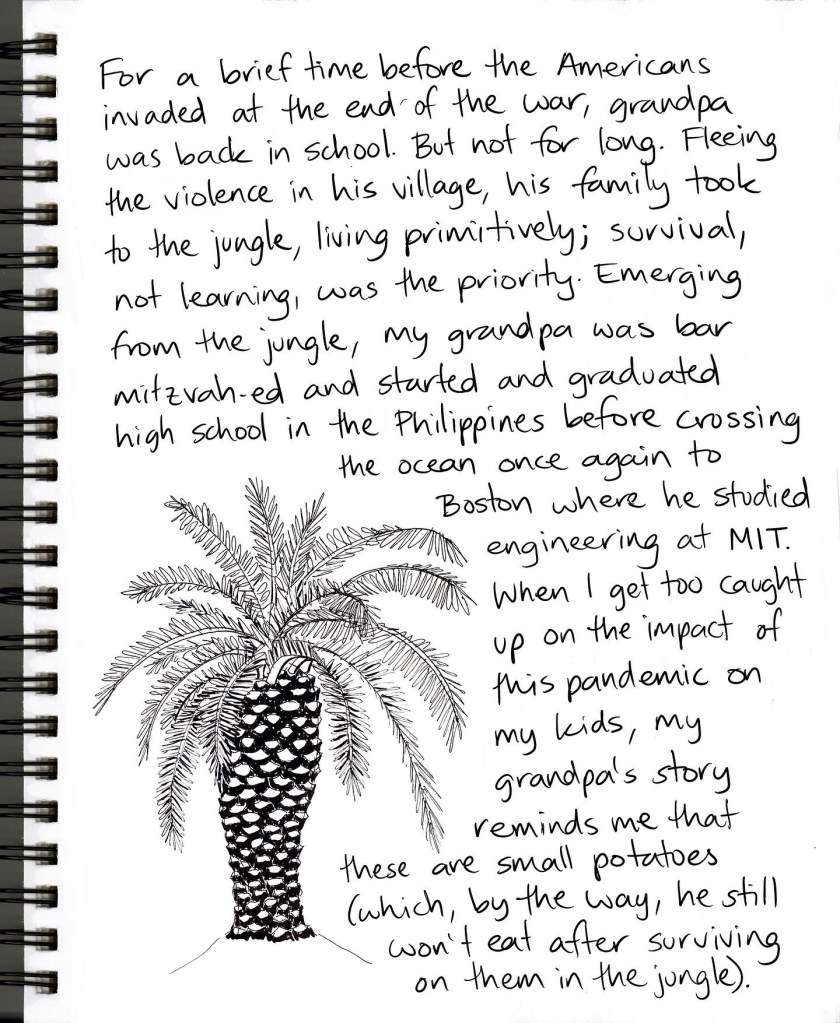 For a brief time before the Americans
invaded at the end of the war, grandpa
was back in school. But not for long. Fleeing
the violence in his village, his family took
to the jungle, living primitively; survival,
not learning, was the priority. Emerging
from the jungle, my grandpa was bar
mitzvah-ed and started and graduated
high school in the Philippines before crossing
the ocean once again to
Boston where he studied
engineering at MIT.
When I get too caught
up on the impact of
this pandemic on
my kids, my
grandpa's story
reminds me that
these are small potatoes
(which, by the way, he still
won't eat after surviving
on them in the jungle).